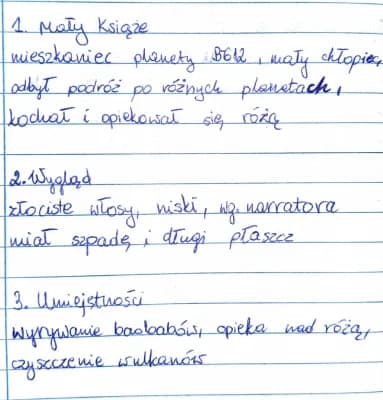 1. Mały Książe
mieszkaniec planety B612, mały chłopiec,
odbył podróż po różnych planetach,
kochał i opiekował się różą
2. Wygląd
złociste włosy, niski, wg. narratora
miał szpadę i długi płaszcz
3. Umiejstności
wyrywanie baobabów, opieka nad różą,
czyszczenie wulkanów